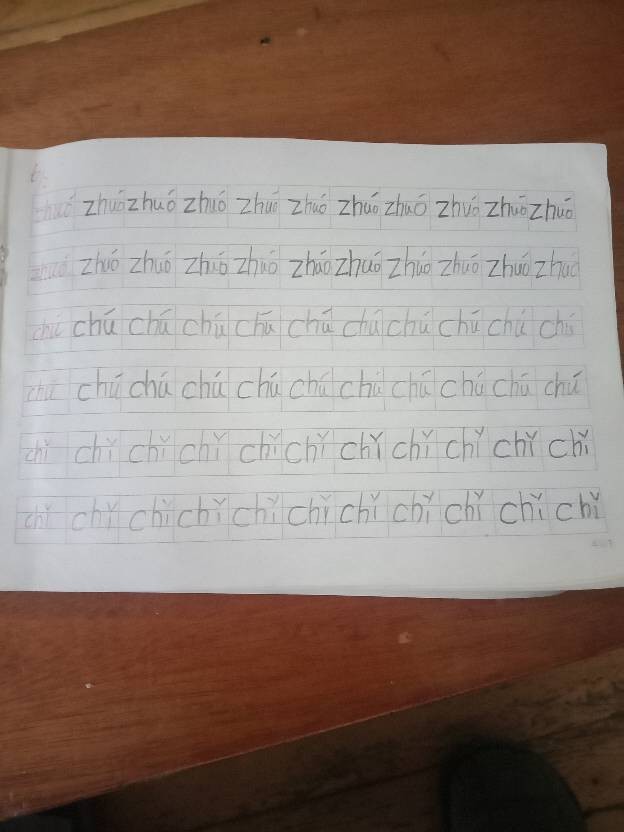 6.
zhuó zhuó zhuó zhuó zhuó zhuó zhuó zhuó zhuó zhuó zhuó
zhuó zhuó zhuó zhuó zhuó zhuó zhuó zhuó zhuó zhuó zhuó
chú chú chú chú chú chú chú chú chú chú chú
chú chú chú chú chú chú chú chú chú chú chú
chǐ chǐ chǐ chǐ chǐ chǐ chǐ chǐ chǐ chǐ chǐ
chǐ chǐ chǐ chǐ chǐ chǐ chǐ chǐ chǐ chǐ chǐ